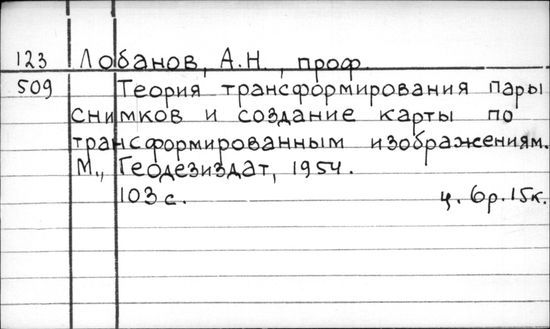 123 Лобанов, А.Н., проф.
509 Теория трансформирования пары
снимков и создание карты по
трансформированным изображениям.
М., Геодезиздат, 1954.
103 с. ц. 6р.15к.